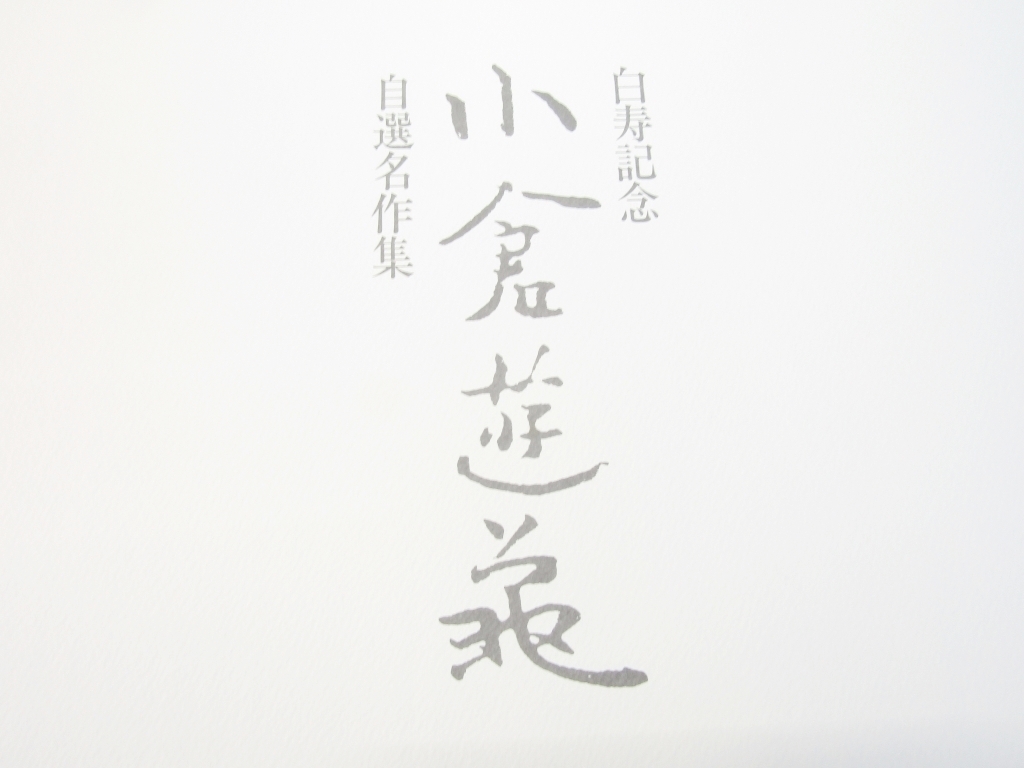 白寿記念
小倉遊亀
自選名作集